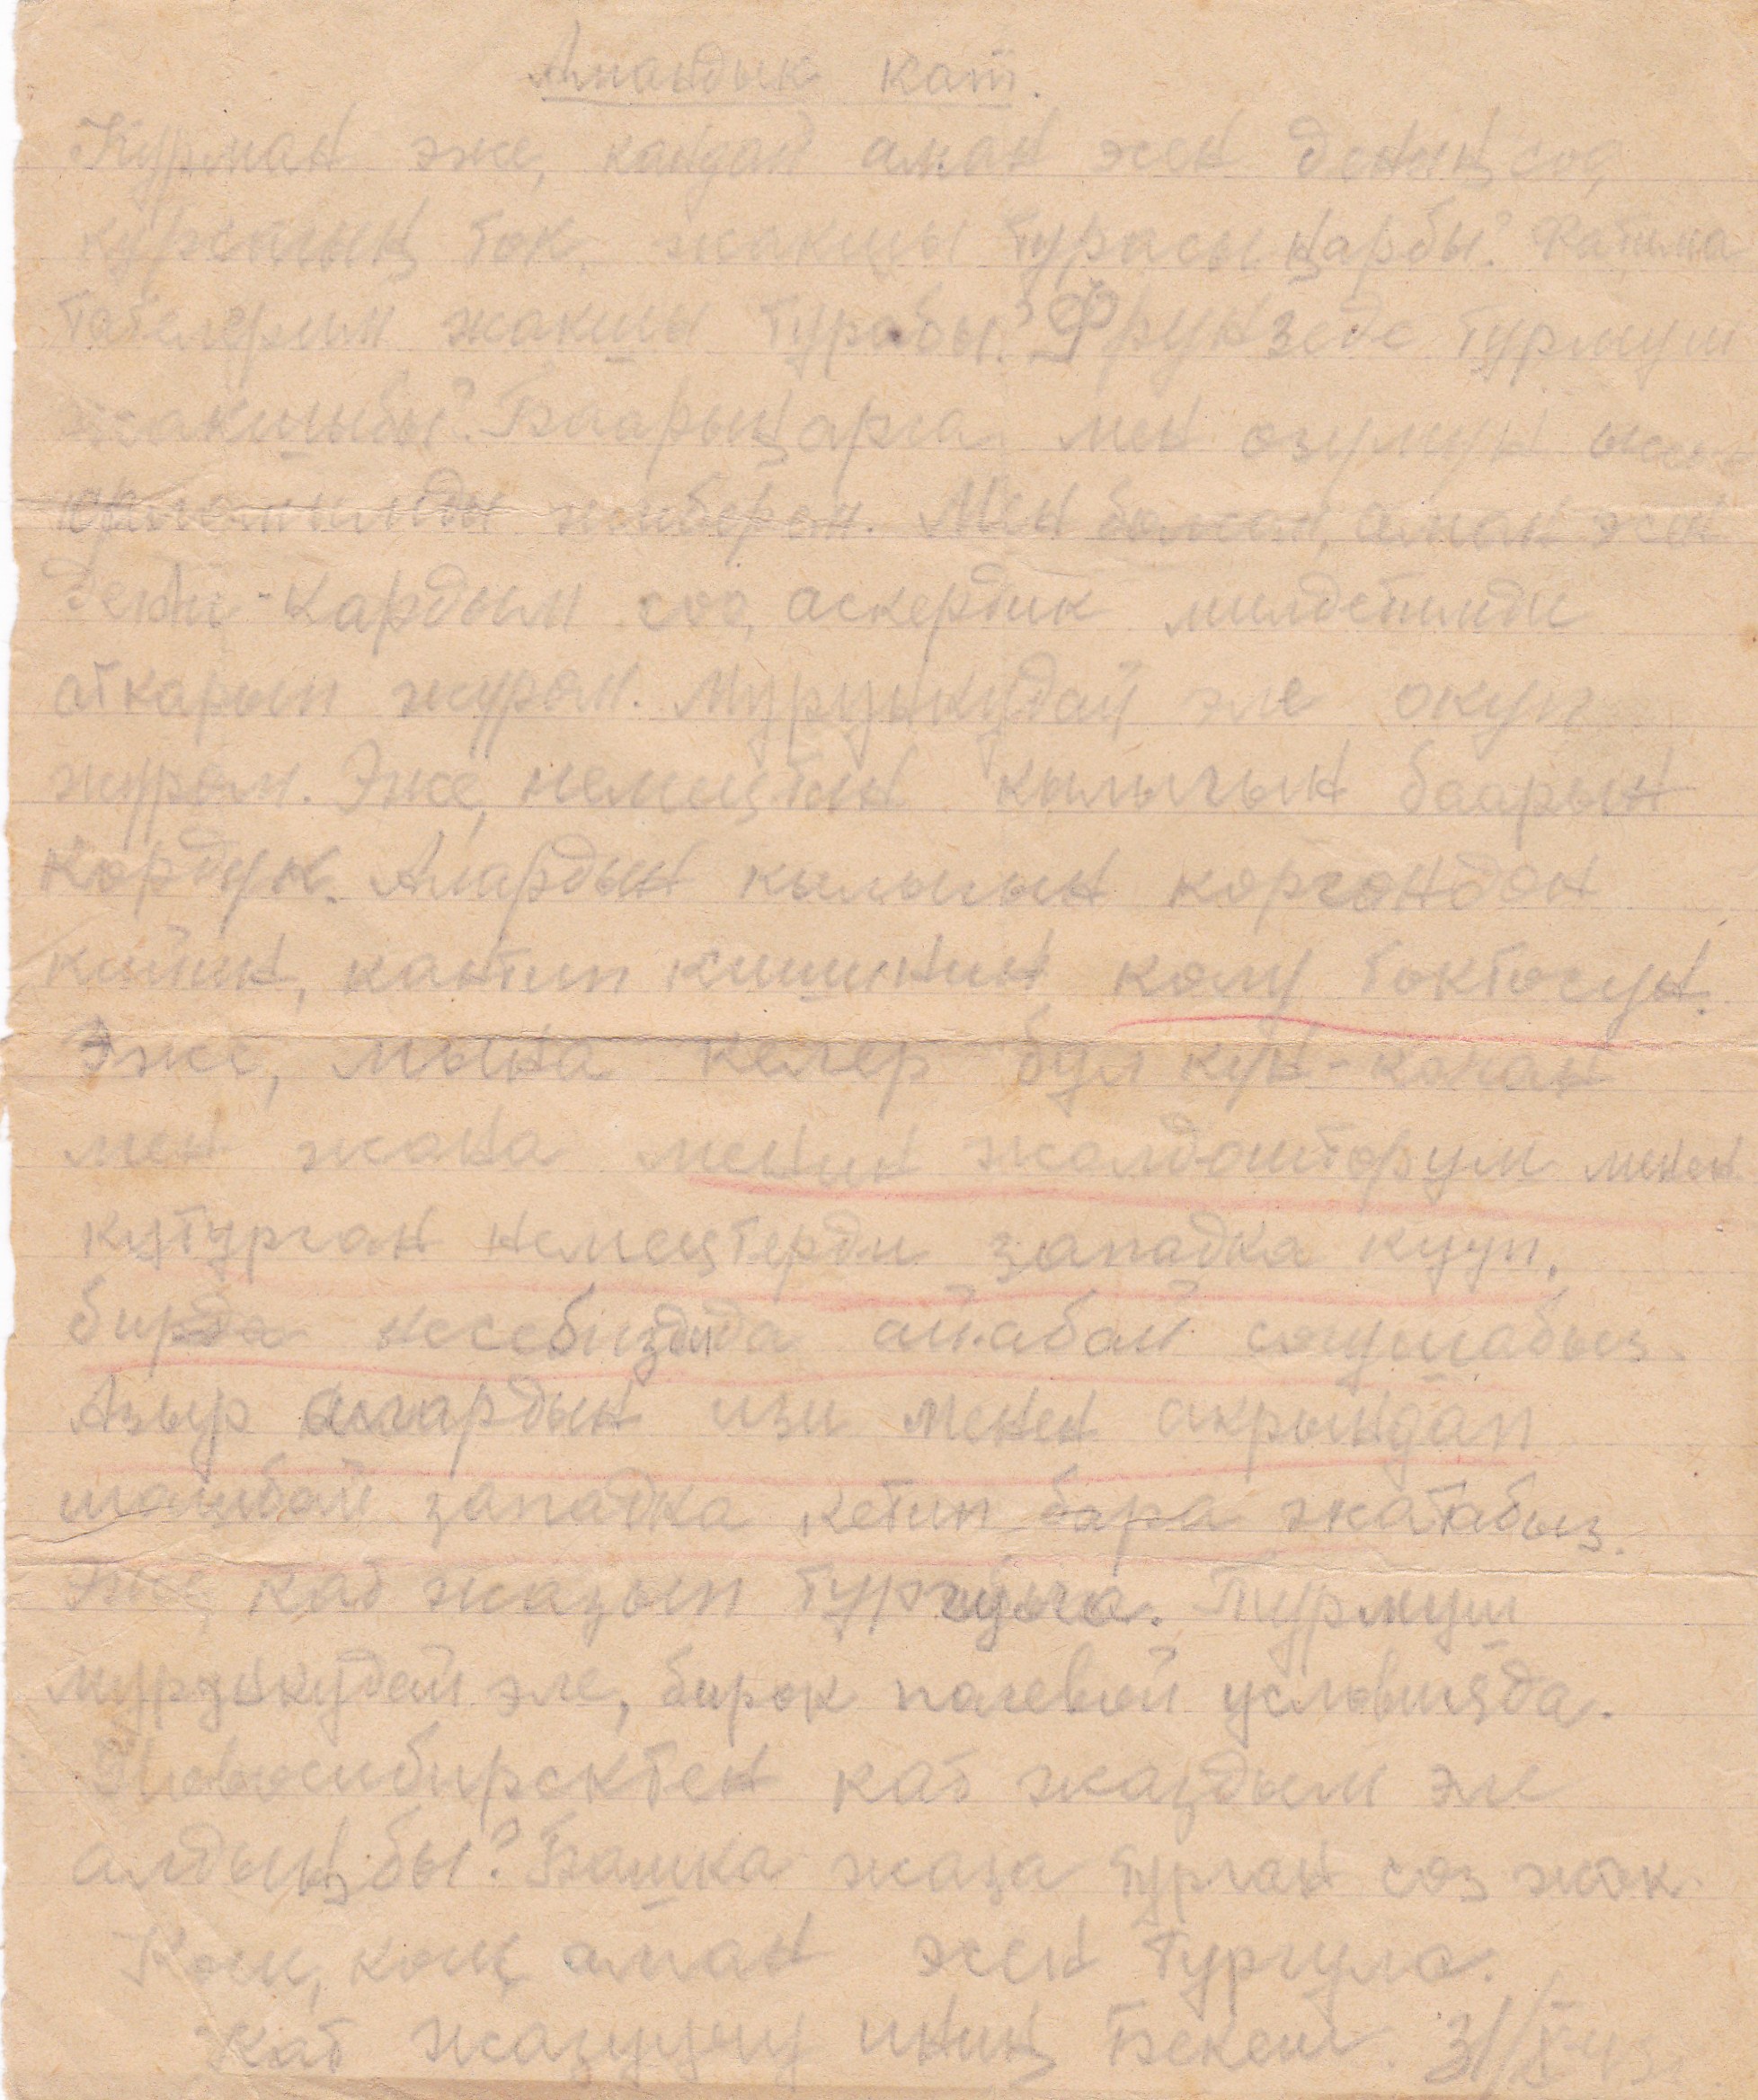 Амандык кат.
Курман эже, кандай аман эсен дениң соо,
курсагың ток, жакшы турасыңарбы? Фатима
жакшы турабы? Фрунзеде турмуш
жакшыбы? Баарыңарга мен өзүмүн ысык
саламымды жиберем. Мен болсом, аман эсен
дени-кардым соо, аскердик милдетимди
аткарып журом. Мурункудай эле окуп
журом. Эже, немецтин кылыгын баарын
кордук. Алардын кылыгын коргондон
кийин, кантип кишинин колу токтосун.
Эже, мына келер бул кун-качан
мен жана менин жолдошторум менен
кутурган немецтерди западка кууп,
бирда несебизди да айабай согушабыз.
Азыр алардын изи менен акрындап
шашбай западка кетип бара жатабыз.
Эже, кат жазып тургула. Турмуш
мурункудай эле, бирок палевой условияда.
Новосибирсктен кат жаздым эле
алдыңбы? Башка жаза турган соз жок.
Кош, кош аман эсен тургула.
Кат жазуучу иниң Бекеш. 31/X-43